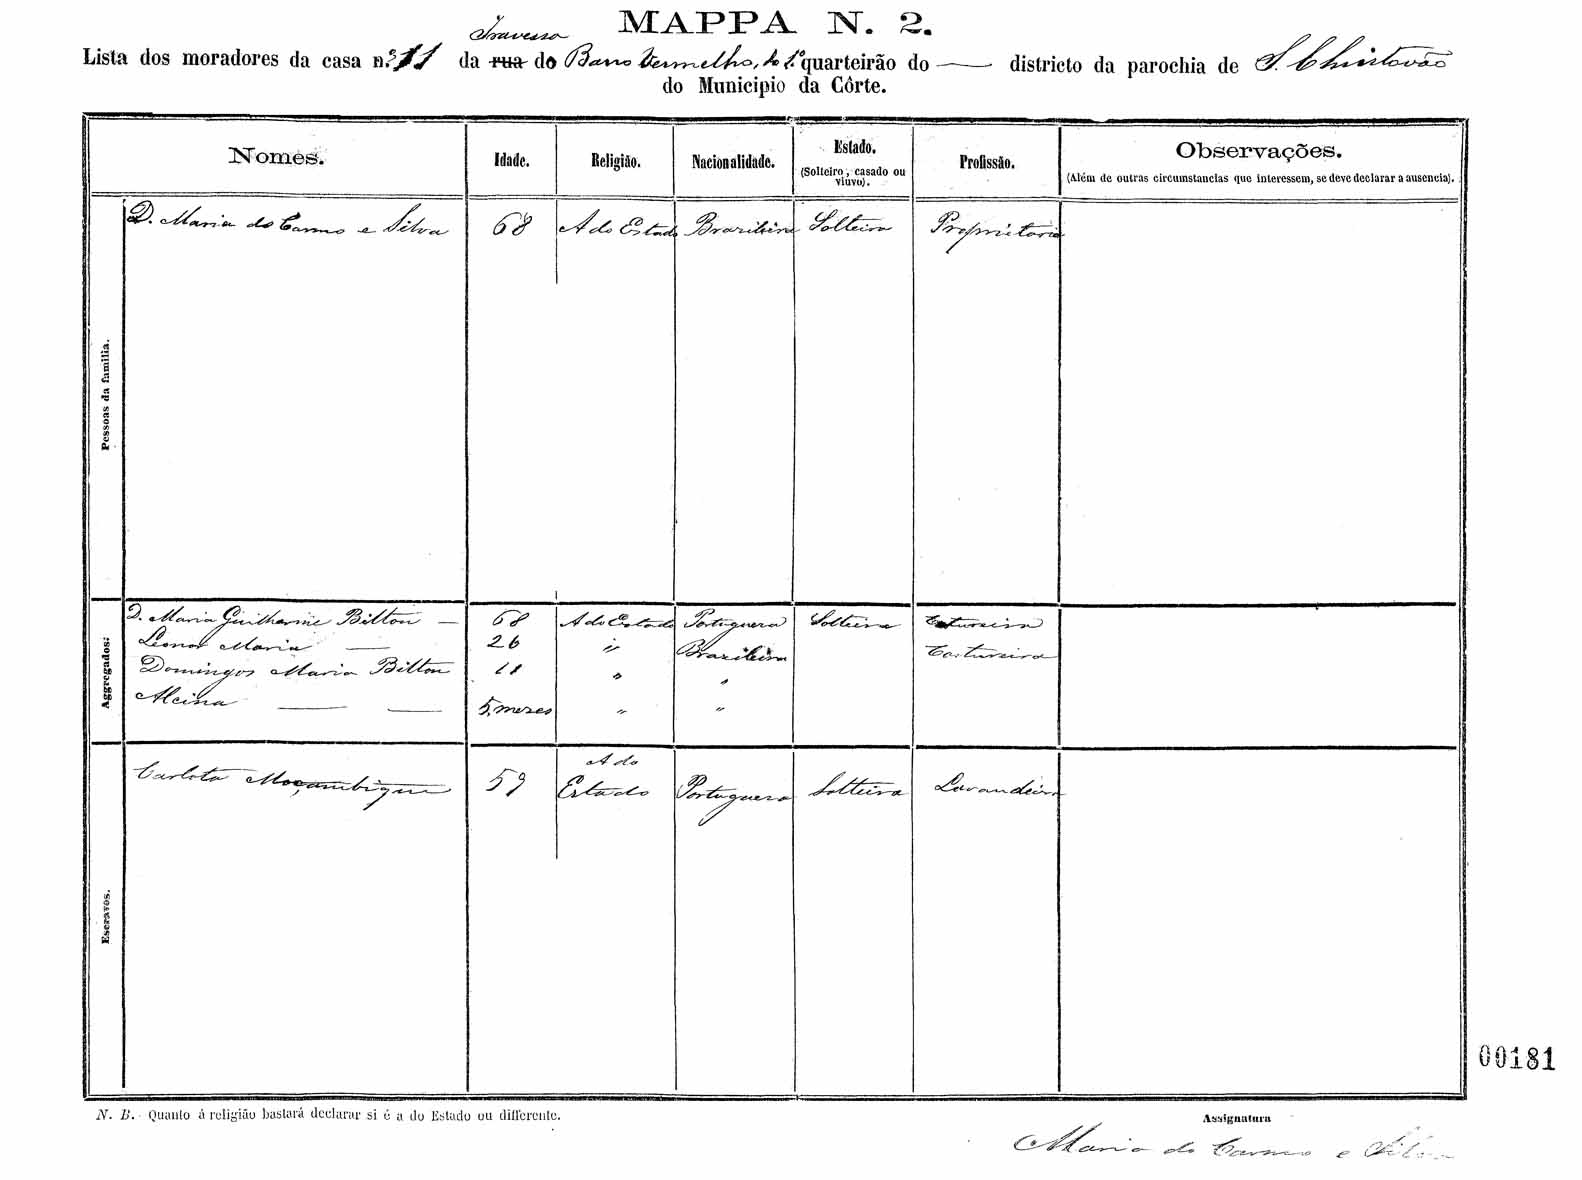 MAPPA N. 2.
Travessa
Lista dos moradores da casa n.º 11 da rua do Barro Vermelho, do 1º quarteirão do — districto da parochia de S. Christovão
do Municipio da Côrte.
Nomes. Idade. Religião. Nacionalidade. Estado. (Solteiro, casado ou viuvo). Profissão. Observações. (Além de outras circumstancias que interessem, se deve declarar a ausencia).
Pessoas da familia.
D. Maria do Carmo e Silva 68 A do Estado Brazileira Solteira Proprietaria
Aggregados:
D. Maria Guilherme Bitton — 68 A do Estado Portugueza Solteira Costureira
Leonor Maria — 26 " Brazileira Costureira
Domingos Maria Bitton 11 " "
Alcina — — 5 mezes " "
Escravos.
Carlota Moçambique 59 A do Estado Portugueza Solteira Lavandeira
00181
N. B. Quanto á religião bastará declarar si é a do Estado ou differente.
Assignatura
Maria do Carmo e Silva